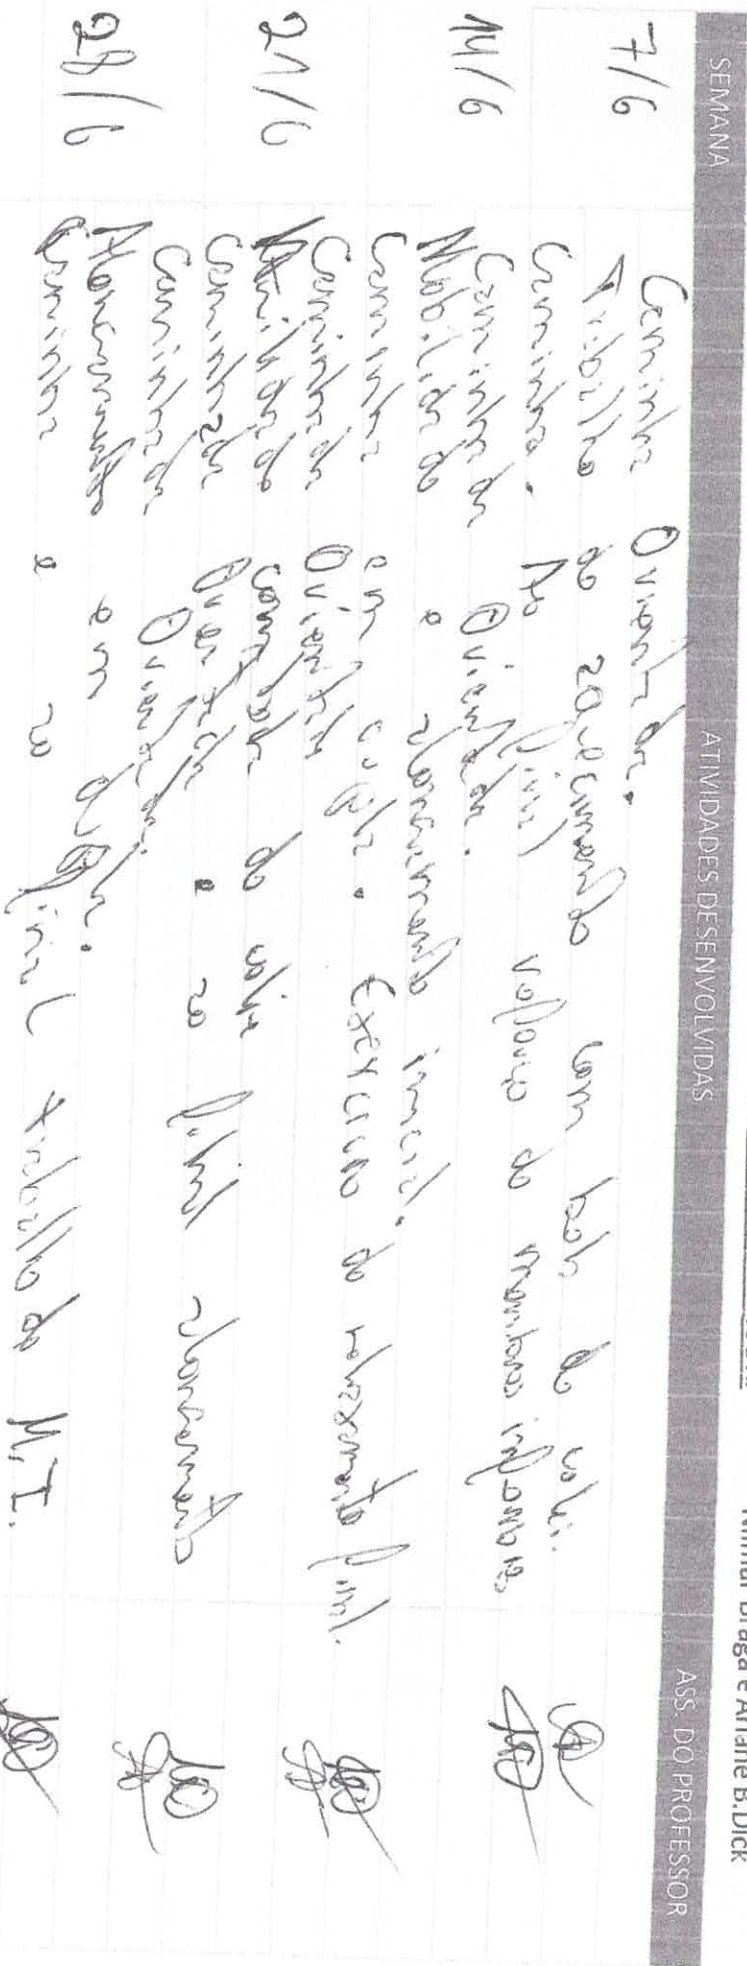 Nilmar Braga e Ariane B.Dick
SEMANA ATIVIDADES DESENVOLVIDAS ASS. DO PROFESSOR
7/6 Caminhada Orientada.
Trabalho de com bola de volei.
Caminhada. Ao final reforço de membros inferiores
14/6 Caminhada Orientada.
Mobilidade e alongamento inicial.
Caminhada em dupla. Exercicio de relaxamento final.
21/6 Caminhada Orientada
de volei
Caminhada Orientada e ao final alongamento
28/6 Caminhada Orientada.
Alongamento em dupla.
Caminhada e ao final trabalho de M.I.